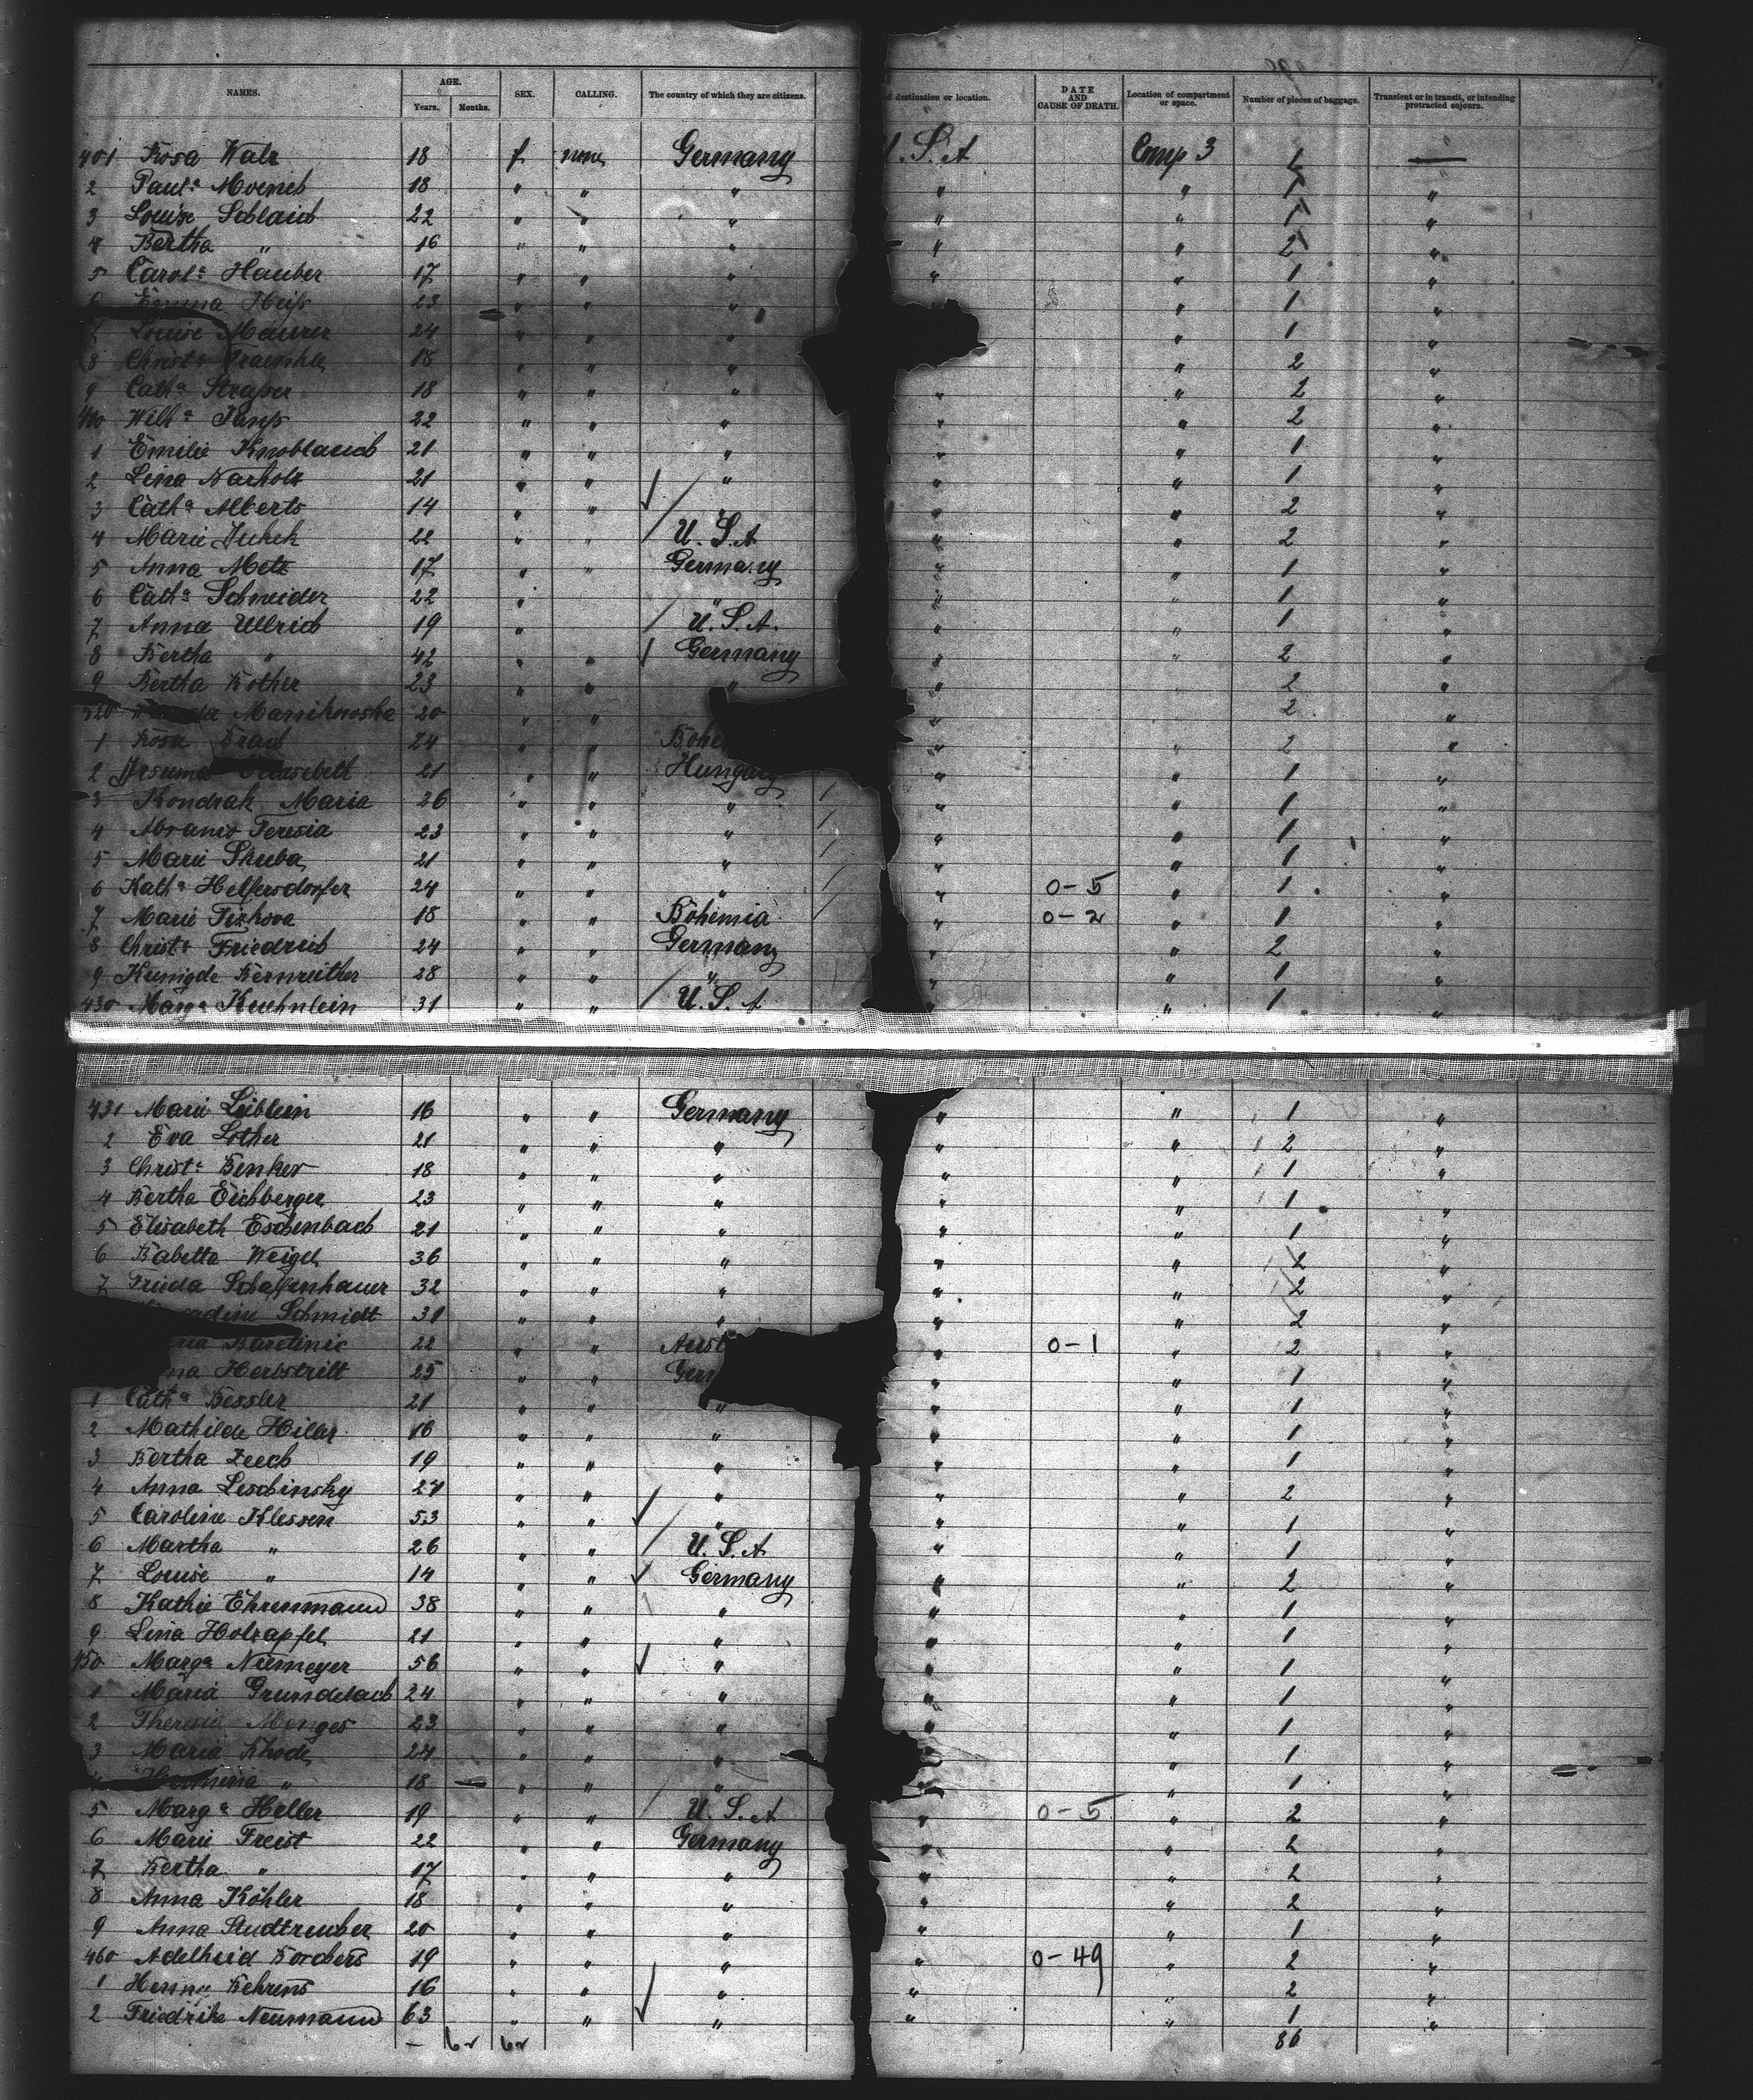 NAMES. AGE. Years. Months. SEX. CALLING. The country of which they are citizens. d destination or location. DATE AND CAUSE OF DEATH. Location of compartment or space. Number of pieces of baggage. Transient or in transit, or intending protracted sojourn.
401 Rosa Walz 18 f none Germany U.S.A Comp 3 1 —
2 Paula 18 " " " " " 1 "
3 Louise Schlaich 22 " " " " " 1 "
4 Bertha " 16 " " " " " 2 "
5 Carola Hauber 17 " " " " " 1 "
6 Emma Heiß 23 " " " " 1 "
7 Louise Maurer 24 " " " " 1 "
8 Christa 18 " " " " 2 "
9 Catha Straßer 18 " " " " " 2 "
410 Wilha 22 " " " " " 2 "
1 Emilie Knoblauch 21 " " " " " 1 "
2 Lina 21 " " " " " 1 "
3 Catha Alberts 14 " " " " " 2 "
4 Marie 22 " " U.S.A " " 2 "
5 Anna Metz 17 " " Germany " " 1 "
6 Catha Schneider 22 " " " " 1 "
7 Anna Ullrich 19 " U.S.A. " " 1 "
8 Bertha " 42 " " Germany " " 2 "
9 Bertha Kother 23 " " " " " 2 "
20 " " " 2 "
1 Rosa 24 " " Bohe " " 2 "
2 21 " " Hungary " " 1 "
3 Kondrak Maria 26 " " " " " 1 "
4 Teresia 23 " " " " " 1 "
5 Marie Skuba 21 " " " " " 1 "
6 Katha Helfersdorfer 24 " " " " 0-5 " 1 "
7 Marie 18 " " Bohemia " 0-2 " 1 "
8 Christa Friedrich 24 " " Germany " " 2 "
9 Kunigde Bernreither 28 " " " " " 1 "
430 Marga Kuehnlein 31 " " U.S.A " " 1 "
431 Marie Leiblein 16 " " Germany " " 1 "
2 Eva Lother 21 " " " " " 2 "
3 Christa Benker 18 " " " " " 1 "
4 Bertha Eichberger 23 " " " " " 1 "
5 Elisabeth Eschenbach 21 " " " " " 1 "
6 Babetta Weigel 36 " " " " " 2 "
7 Frieda Schaffenhauer 32 " " " " " 2 "
Schmidt 31 " " " " " 2 "
22 " " Aust " 0-1 " 2 "
na Herbstritt 25 " " Ger " " 1 "
1 Catha Bessler 21 " " " " " 1 "
2 Mathilde Hiller 18 " " " " " 1 "
3 Bertha Zeech 19 " " " " " 1 "
4 Anna Leschinsky 27 " " " " " 2 "
5 Caroline Klessen 53 " " " " " 1 "
6 Martha " 26 " " U.S.A " " 1 "
7 Louise " 14 " " Germany " " 2 "
8 Kathie Ehrenmann 38 " " " " " 1 "
9 Lina Holzapfel 21 " " " " " 1 "
450 Marga Niemeyer 56 " " " " " 1 "
1 Maria Grundelach 24 " " " " " 1 "
2 Theresia Menges 23 " " " " " 1 "
3 Maria Rhode 24 " " " " " 1 "
" 18 " " " " " 1 "
5 Marga Heller 19 " " U.S.A " 0-5 " 2 "
6 Marie Freist 22 " " Germany " " 2 "
7 Bertha " 17 " " " " " 2 "
8 Anna Köhler 18 " " " " " 2 "
9 Anna 20 " " " " " 1 "
460 Adelheid Borchers 19 " " " " 0-49 " 2 "
1 Henny Behrens 16 " " " " " 2 "
2 Friedrike Neumann 63 " " " " " 1 "
— 62 62 86